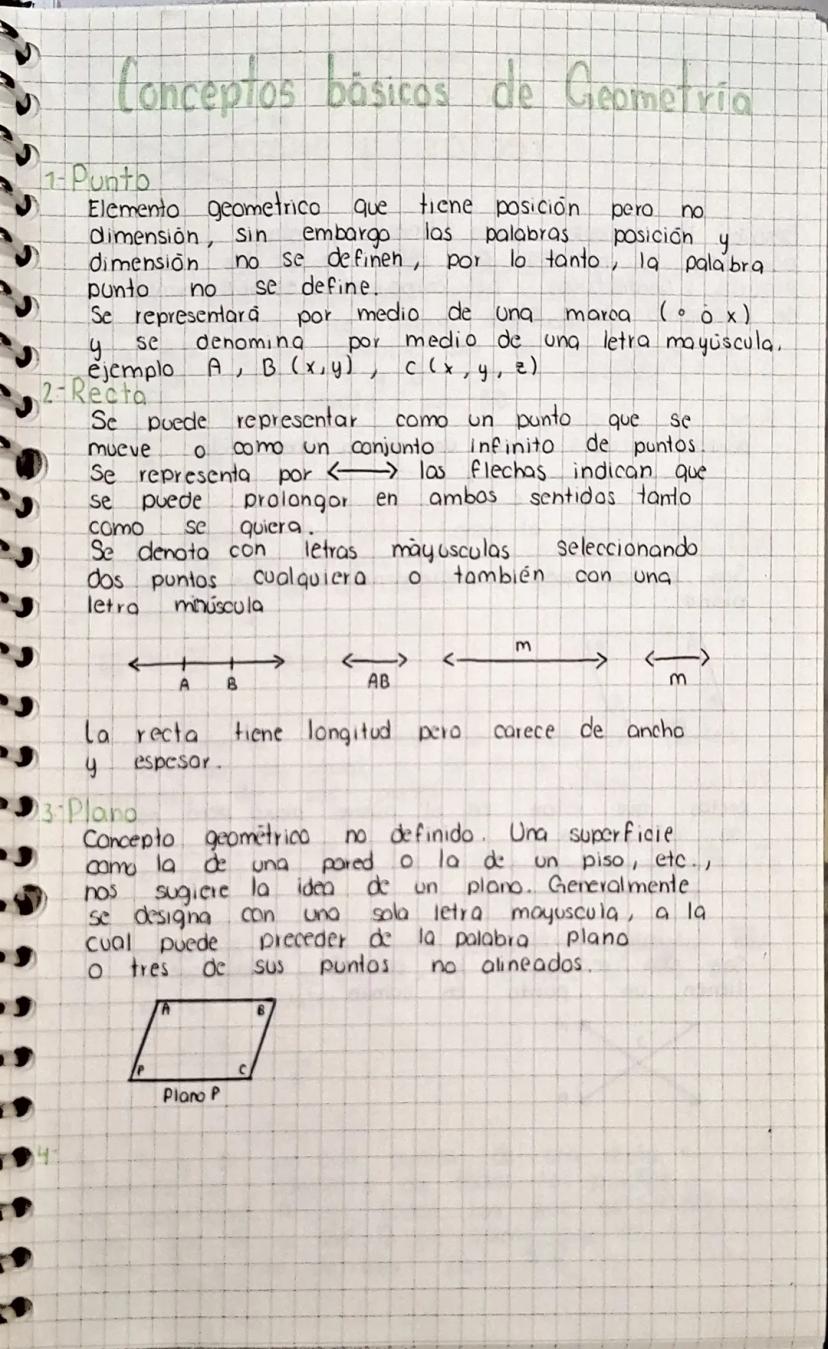 Conceptos básicos de Geometría
1-Punto
Elemento geometrico que tiene posición pero no
dimensión, sin embargo las palabras posición y
dimensión no se definen, por lo tanto, la palabra
punto no se define.
Se representará por medio de una marca (∘ ó x)
y se denomina por medio de una letra mayúscula.
ejemplo A, B (x,y), C (x, y, z)
2-Recta
Se puede representar como un punto que se
mueve o como un conjunto infinito de puntos.
Se representa por ⟷ las flechas indican que
se puede prolongar en ambos sentidos tanto
como se quiera.
Se denota con letras máyusculas seleccionando
dos puntos cualquiera o también con una
letra minúscula
A B AB m m
La recta tiene longitud pero carece de ancho
y espesor.
3-Plano
Concepto geométrico no definido. Una superficie
como la de una pared o la de un piso, etc.,
nos sugiere la idea de un plano. Generalmente
se designa con una sola letra mayuscula, a la
cual puede preceder de la palabra plano
o tres de sus puntos no alineados.
A B
P C
Plano P
4-